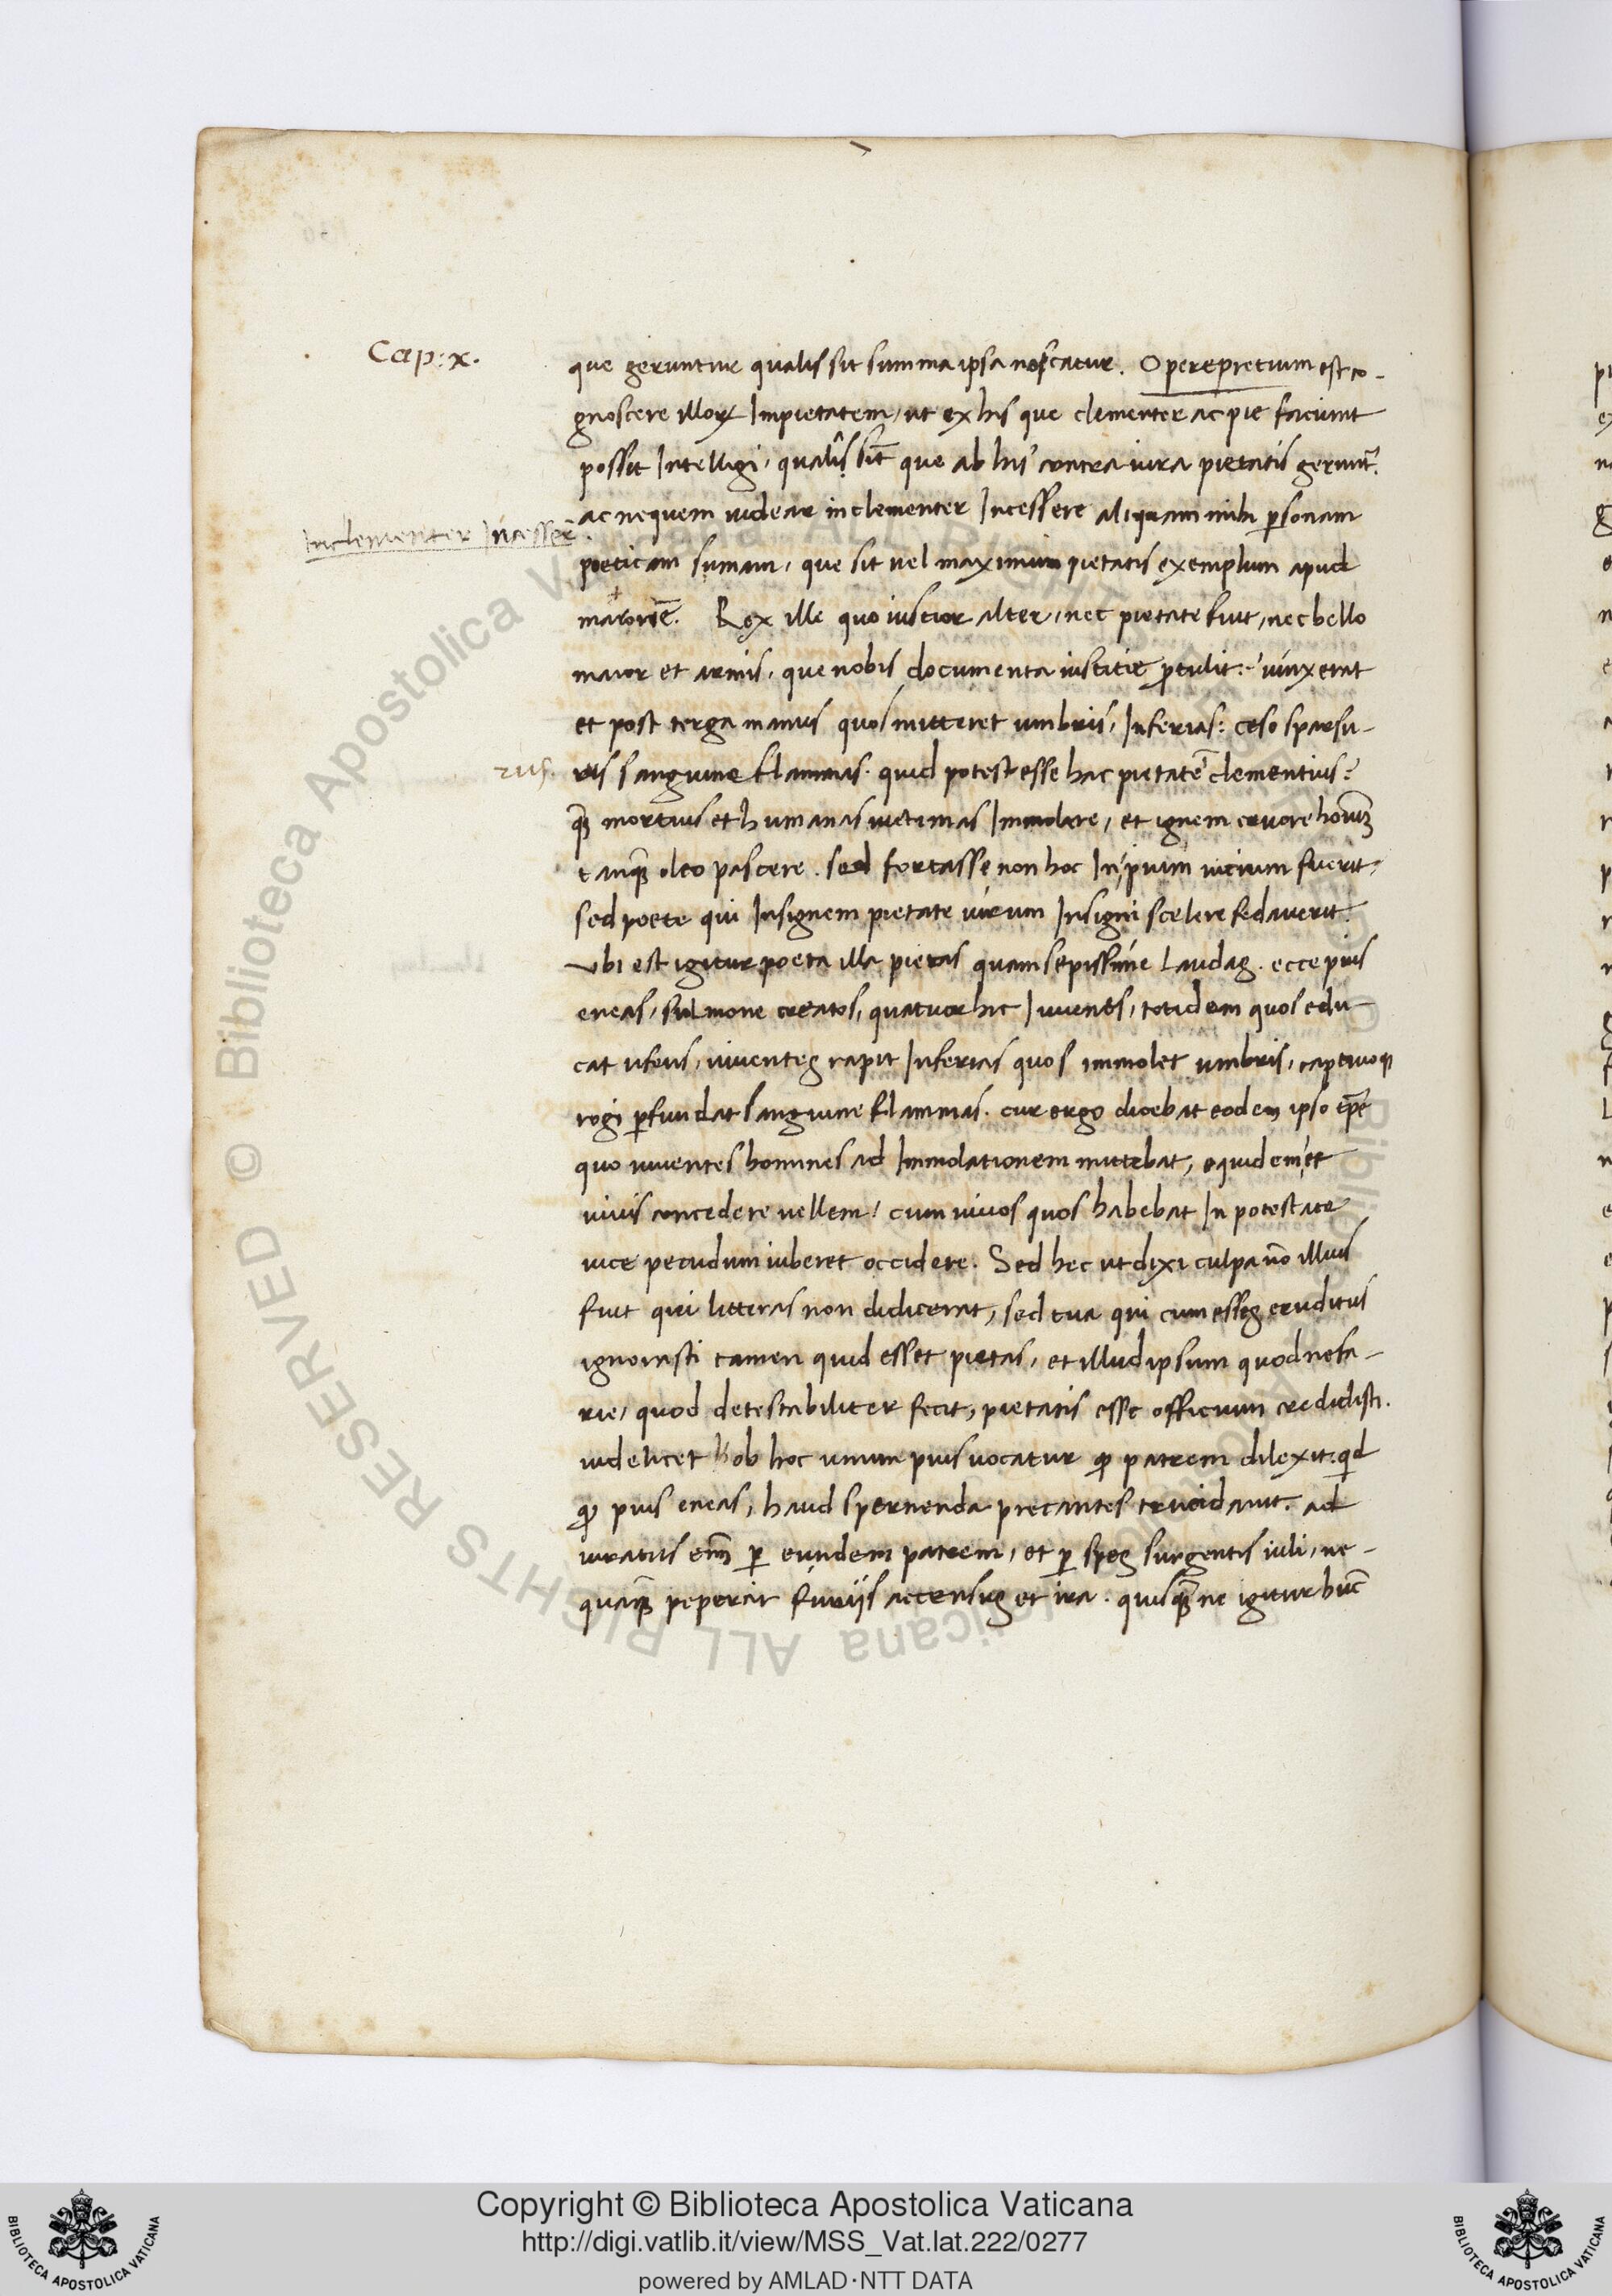 Cap: x.
que geruntur qualis sit summa ipsa noscatur. Opereprecium est co-
gnoscere illoꝝ Impietatem, ut ex his que clementer ac pie faciunt
possit Intelligi, qualis sit que ab his contra iura pietatis gerunt̃.
Inclementer Incesser̃.
ac nequem uidear inclementer Incessere aliquam mihi ꝑsonam
poeticam sumam, que sit uel maximum pietatis exemplum apud
maronẽ. Rex ille quo iustior alter, nec pietate fuit, nec bello
maior et armis, que nobis documenta iusticie ꝓtulit: uinxerat
et post terga manus quos mitteret umbris, Inferias: ceso sparsu-
rus.
rus sanguine flammas. quid potest esse hac pietatẽ clementius?
quã mortuis et humanas uictimas Immolare, et ignem cruore hominũ
tanquã oleo pascere. sed fortasse non hoc Ipsium uicium fuerit,
sed poete qui Insignem pietate uirum Insigni scelere fedauerit.
Vbi est igitur poeta illa pietas quam sepissime Laudas. ecce pius
eneas, sulmone creatos, quatuor hic Iuuenes, totidem quos edu-
cat ufens, uiuentes rapit Inferias quos immolet umbris, captiuoqꝫ
rogi ꝑfundat sanguine flammas. cur ergo dicebat eodem ipso tp̃e
quo uiuentes homines ad Immolationem mittebat, equidem et
uiuis concedere uellem, cum uiuos quos habebat In potestate
uice pecudum iuberet occidere. Sed hec ut dixi culpa nõ illius
fuit qui litteras non didicerat, sed tua qui cum esses eruditus
ignorasti tamen quid esset pietas, et illud ipsum quod nefa-
rie, quod detestabiliter fecit, pietatis esse officium credidisti.
uidelicet ob hoc unum pius uocatur ꝙ patrem dilexit: qd
ꝙ pius eneas, haud spernenda precantes trucidauit. ad
iuratus enĩ ꝑ eundem patrem, et ꝑ spes surgentis iuli, ne-
quaquã pepercit furiis accensus et ira. quisquã ne igitur hũc
Copyright © Biblioteca Apostolica Vaticana
http://digi.vatlib.it/view/MSS_Vat.lat.222/0277
powered by AMLAD·NTT DATA